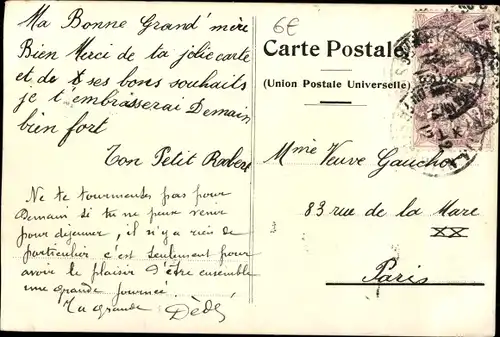 Ma Bonne Grand'mère
Bien Merci de ta jolie carte
et de ses bons souhaits
je t'embrasserai Demain
bien fort
Ton Petit Robert
Ne te tourmentes pas pour
Demain si tu ne peux venir
pour déjeuner, il n'y a rien de
particulier, c'est seulement pour
avoir le plaisir d'être ensemble
une grande journée.
Ta grande Dédé
6E
Carte Postale
(Union Postale Universelle)
Mme Veuve Gauchon
83 rue de la Mare
XX
Paris